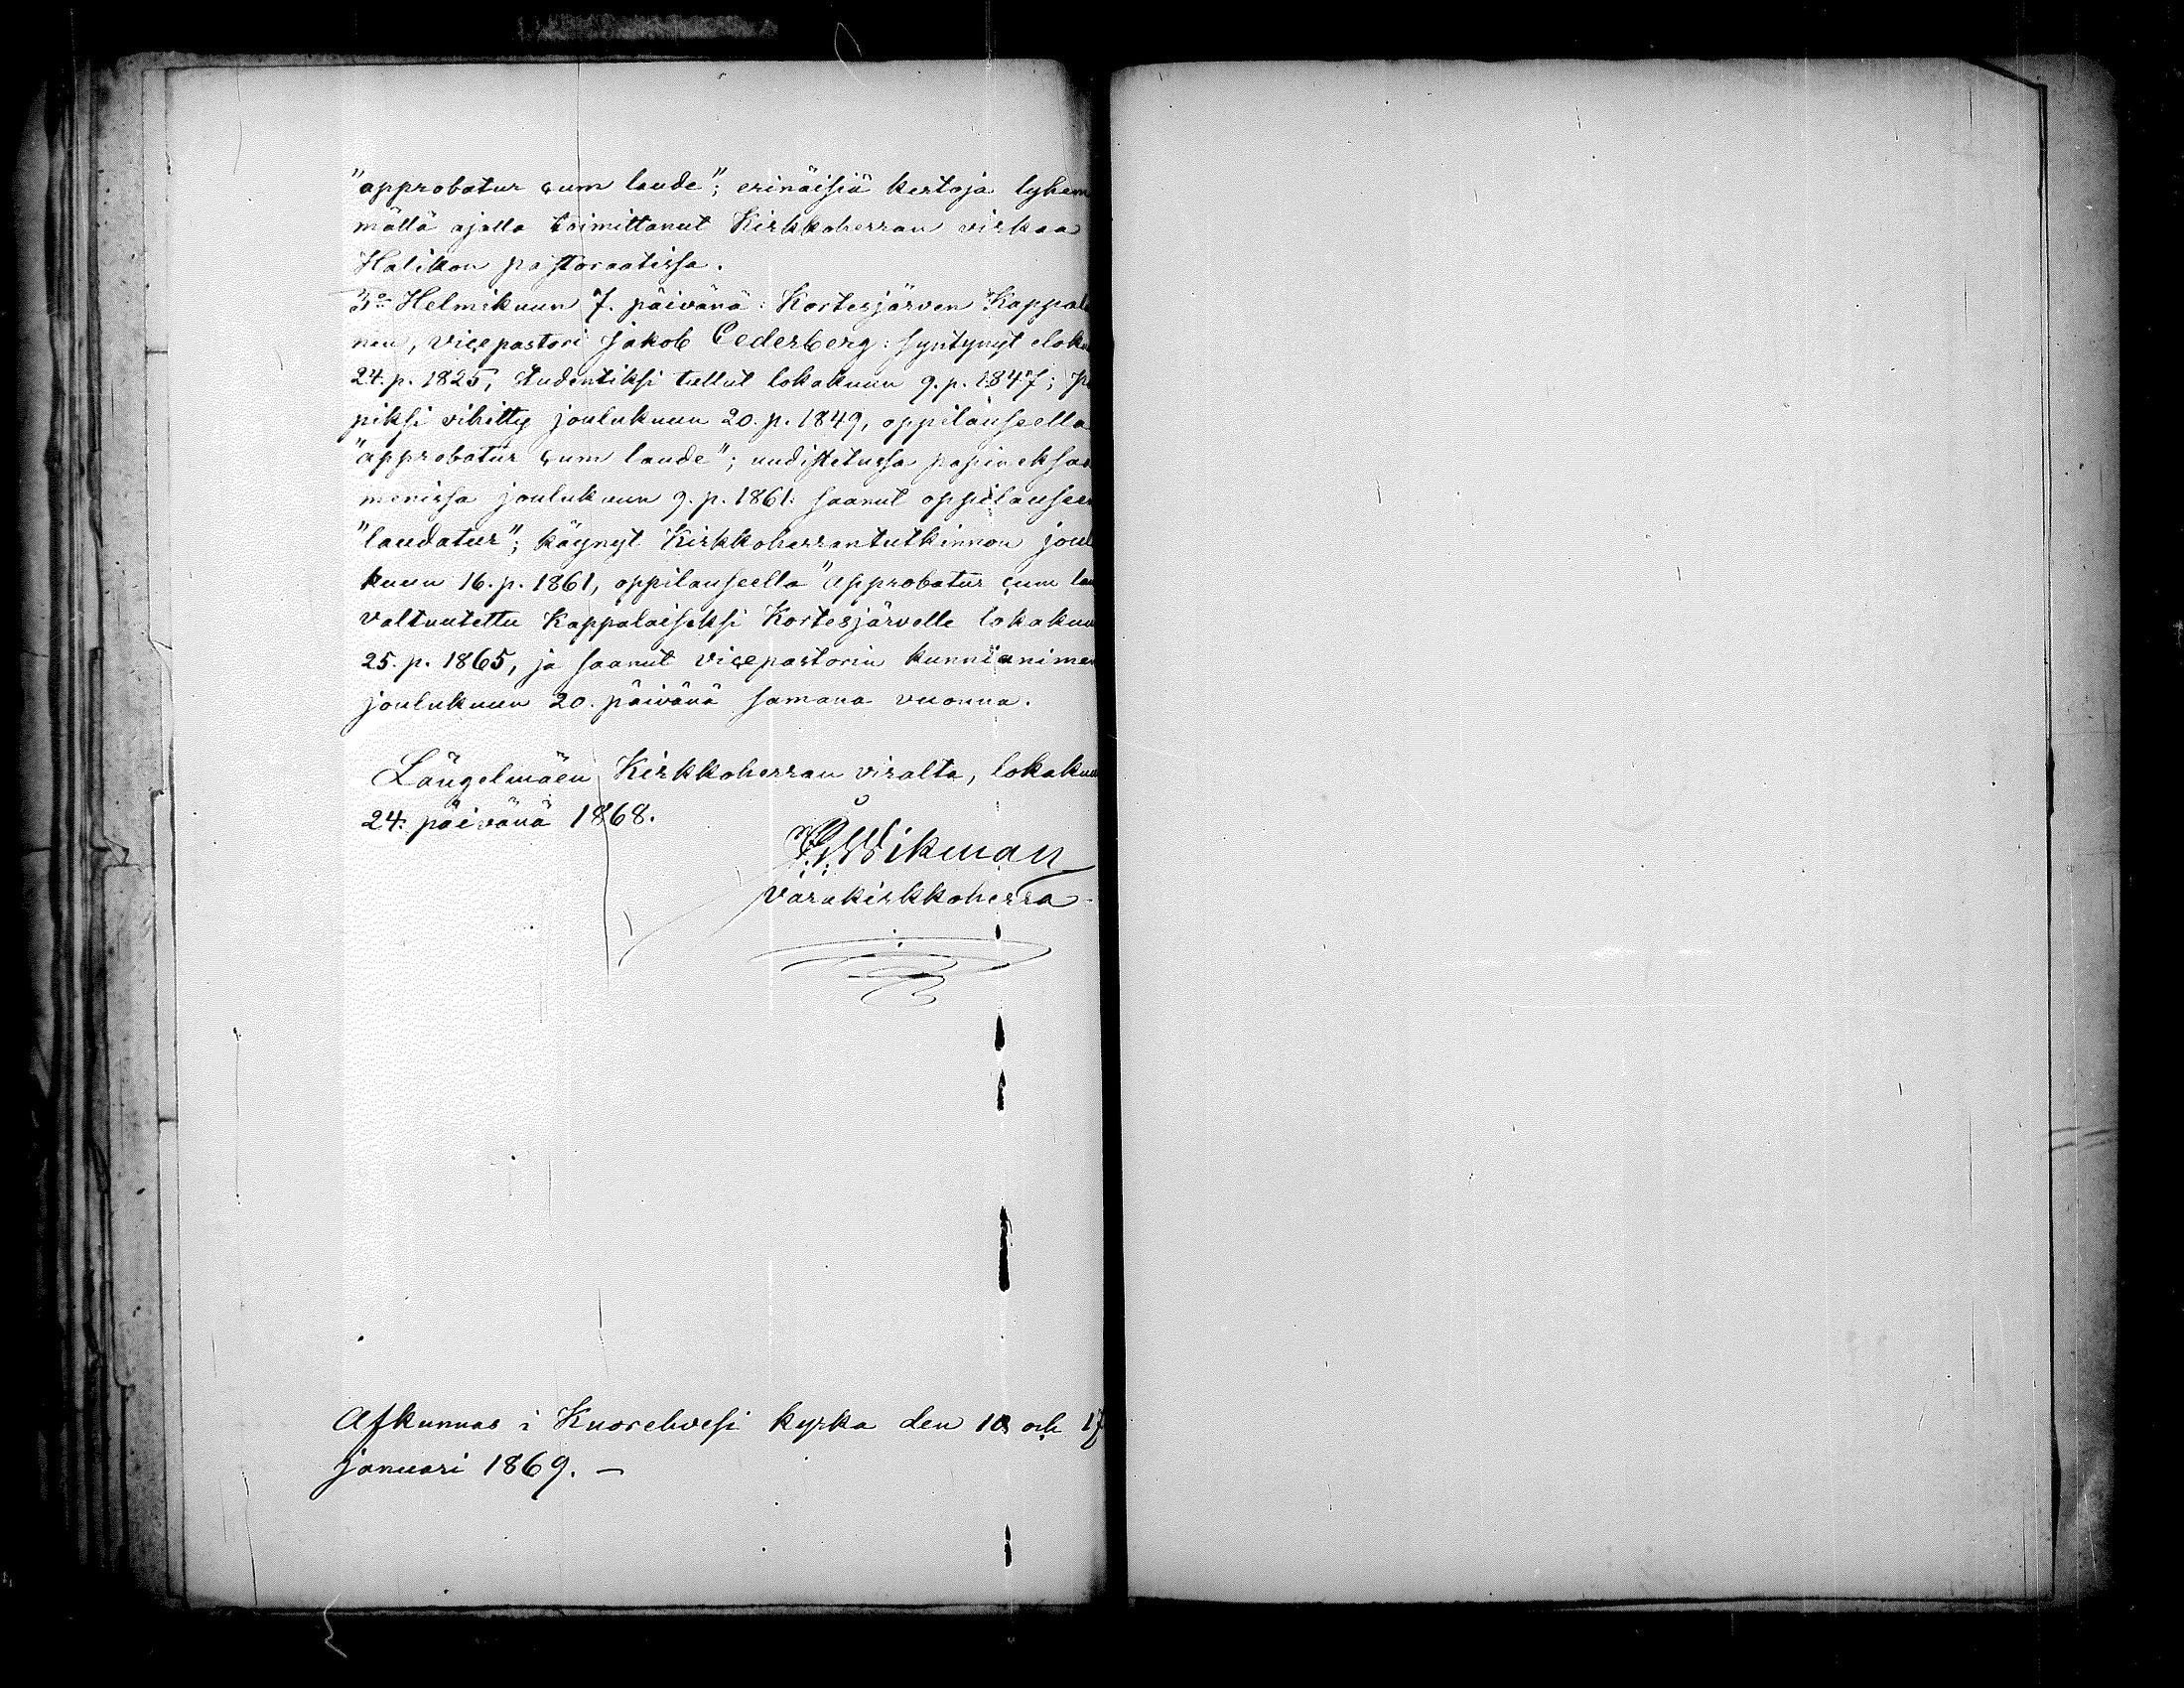 "approbatur cum laude"; erinäisiä kertoja lyhem
mällä ajalla toimittanut Kirkkoherran virkaa
Halikon pastoraatissa.
3:o Helmikuun 7. päivänä: Kortesjärven Kappala
nen, vicepastori Jakob Cederberg: syntynyt eloku
24. p. 1825, studentiksi tullut lokakuun 9. p. 1847; pa
piksi vihitty joulukuun 20. p. 1849, oppilauseella
"approbatur cum laude"; uudistetussa papin eksa
menissa joulukuun 9. p. 1861. saanut oppilauseen
"laudatur"; käynyt Kirkkoherrantutkinnon joul
kuun 16. p. 1861, oppilauseella "approbatur cum lau
valtuutettu Kappalaiseksi Kortesjärvelle lokakuu
25. p. 1865, ja saanut vicepastorin kunnianimen
joulukuun 20. päivänä samana vuonna.
Längelmäen Kirkkoherran viralta, lokakuu
24. päivänä 1868.
Wikman
Varakirkkoherra.
Afkunnas i Kuorehvesi kyrka den 10 och 17
januari 1869. —